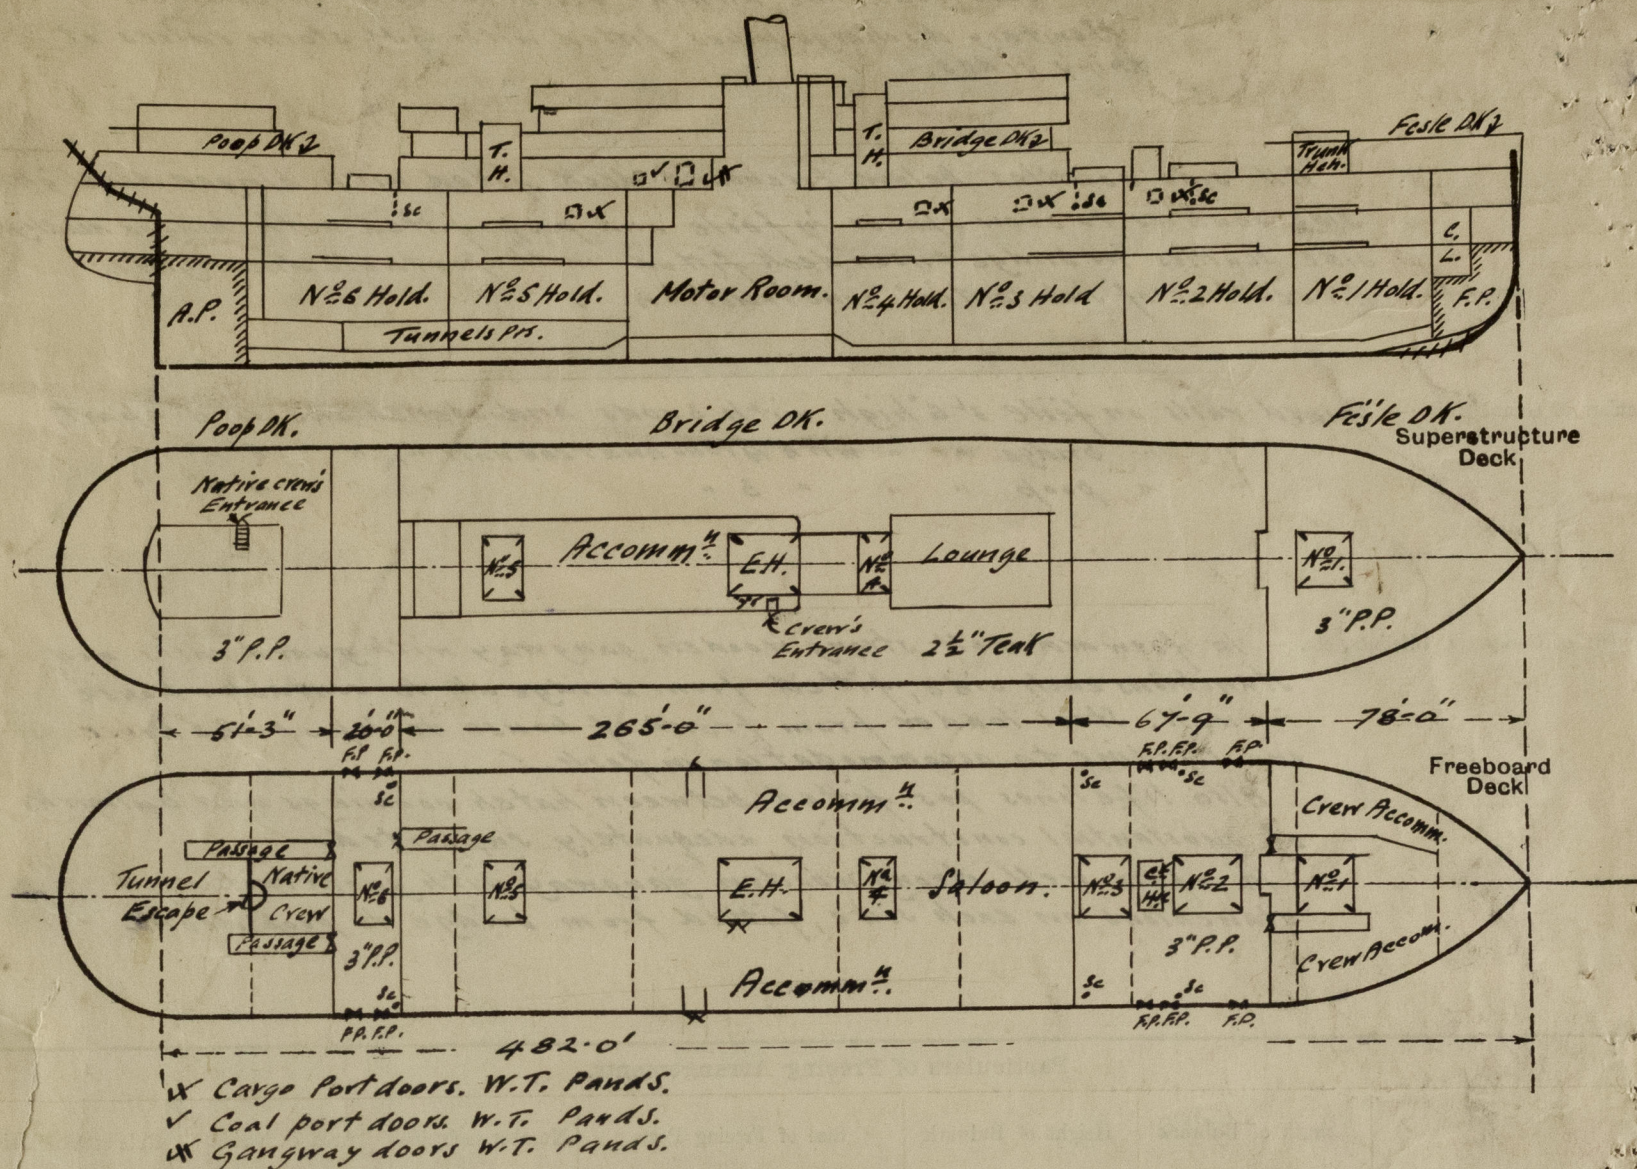 Poop DK
T.
H.
T.
H.
Bridge DK
Fcsle DK
Trunk
Hch.
sc
sc
sc
C.
L.
A.P.
Nº6 Hold.
Nº5 Hold.
Motor Room.
Nº4 Hold.
Nº3 Hold
Nº2 Hold.
Nº1 Hold.
F.P.
Tunnels P/S.
Poop DK.
Bridge DK.
Fcsle DK.
Superstructure
Deck
Native crew's
Entrance
Nº5
Accommⁿ.
E.H.
Nº
4
Lounge
Nº1.
3" P.P.
Crew's
Entrance
2½" Teak
3" P.P.
51'-3"
20'-0"
265'-0"
67'-9"
78'-0"
F.P. F.P.
F.P. F.P.
F.P.
Freeboard
Deck
sc
Accommⁿ.
sc
sc
Crew Accomm.
Passage
Passage
Tunnel
Escape
Native
Crew
Nº6
Nº5
E.H.
Nº
4
Saloon.
Nº3
Nº2
Nº1
Passage
3" P.P.
3" P.P.
Crew Accom.
sc
Accommⁿ.
sc
sc
F.P. F.P.
F.P. F.P.
F.P.
482'-0"
Cargo Port doors. W.T. Pands.
✓ Coal port doors. W.T. Pands.
Gangway doors W.T. Pands.